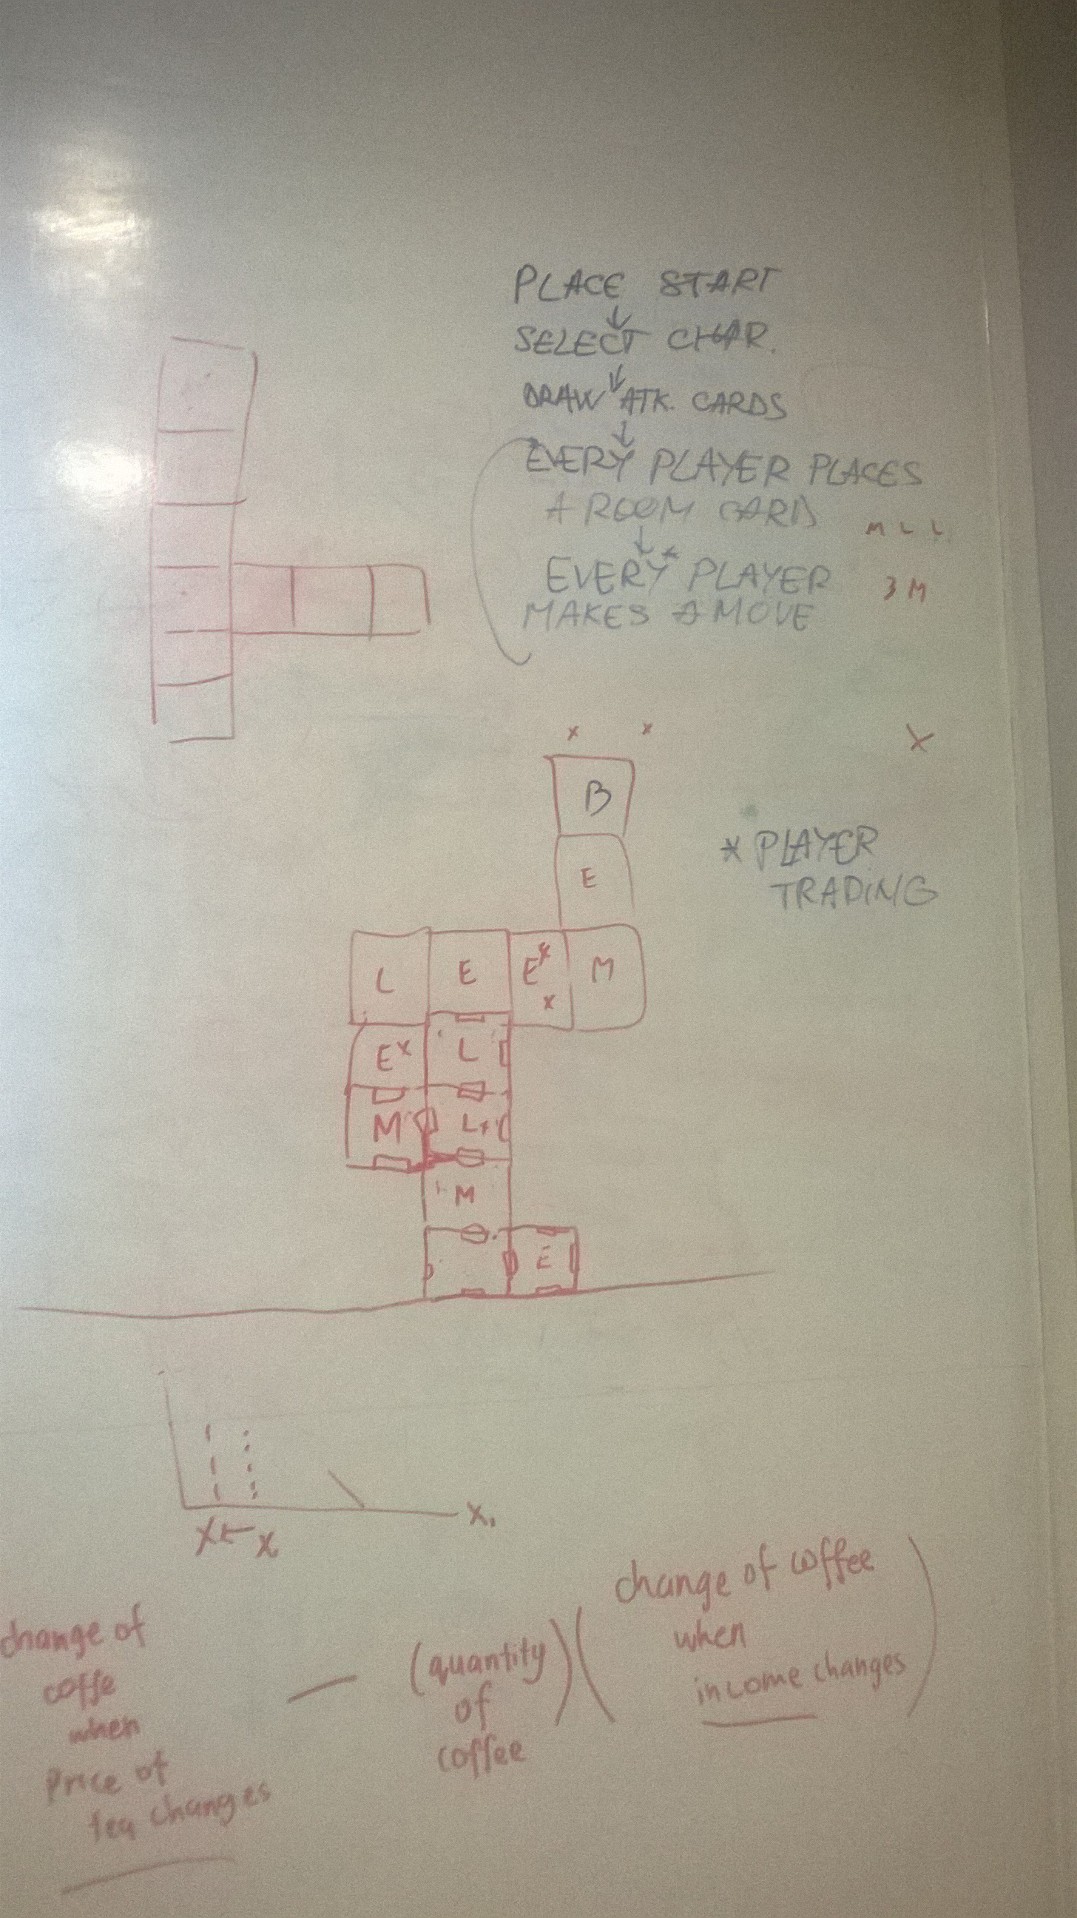 PLACE START
↓
SELECT CHAR.
↓
DRAW ATK. CARDS
↓
EVERY PLAYER PLACES
A ROOM CARD
↓
EVERY* PLAYER
MAKES A MOVE
M L L
3 M
x x x
B
E
* PLAYER
TRADING
L E E* M
x
Ex L
M L+
M
E
X.
X ← X
change of
coffe
when
Price of
tea changes
— (quantity
of
coffee)
(change of coffee
when
income changes)